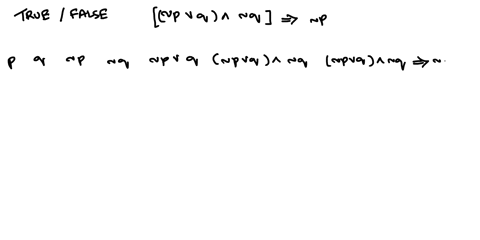 TRUE / FALSE [(~p ∨ q) ∧ ~q] ⇒ ~p
p q ~p ~q ~p ∨ q (~p ∨ q) ∧ ~q (~p ∨ q) ∧ ~q ⇒ ~